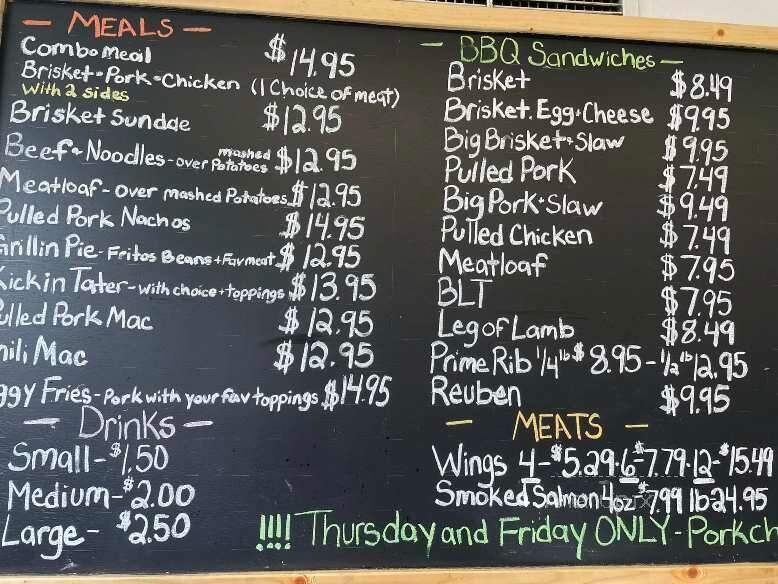 - MEALS -
Combo Meal $14.95
Brisket-Pork-Chicken (1 Choice of meat)
with 2 sides
Brisket Sundae $12.95
Beef & Noodles - over mashed Potatoes $12.95
Meatloaf - over mashed Potatoes $12.95
Pulled Pork Nachos $14.95
Grillin Pie - Fritos Beans + Fav meat $12.95
Kickin Tater - with choice + toppings $13.95
ulled Pork Mac $12.95
hili Mac $12.95
ggy Fries - Pork with your fav toppings $14.95
- Drinks -
Small - $1.50
Medium - $2.00
Large - $2.50
- BBQ Sandwiches -
Brisket $8.49
Brisket. Egg + Cheese $9.95
Big Brisket + Slaw $9.95
Pulled Pork $7.49
Big Pork + Slaw $9.49
Pulled Chicken $7.49
Meatloaf $7.95
BLT $7.95
Leg of Lamb $8.49
Prime Rib 1/4 lb $8.95 - 1/2 lb 12.95
Reuben $9.95
- MEATS -
Wings 4 - $5.29 - 6 - $7.79 - 12 - $15.49
Smoked Salmon 4oz $7.99 lb 24.95
!!!! Thursday and Friday ONLY - Porkch